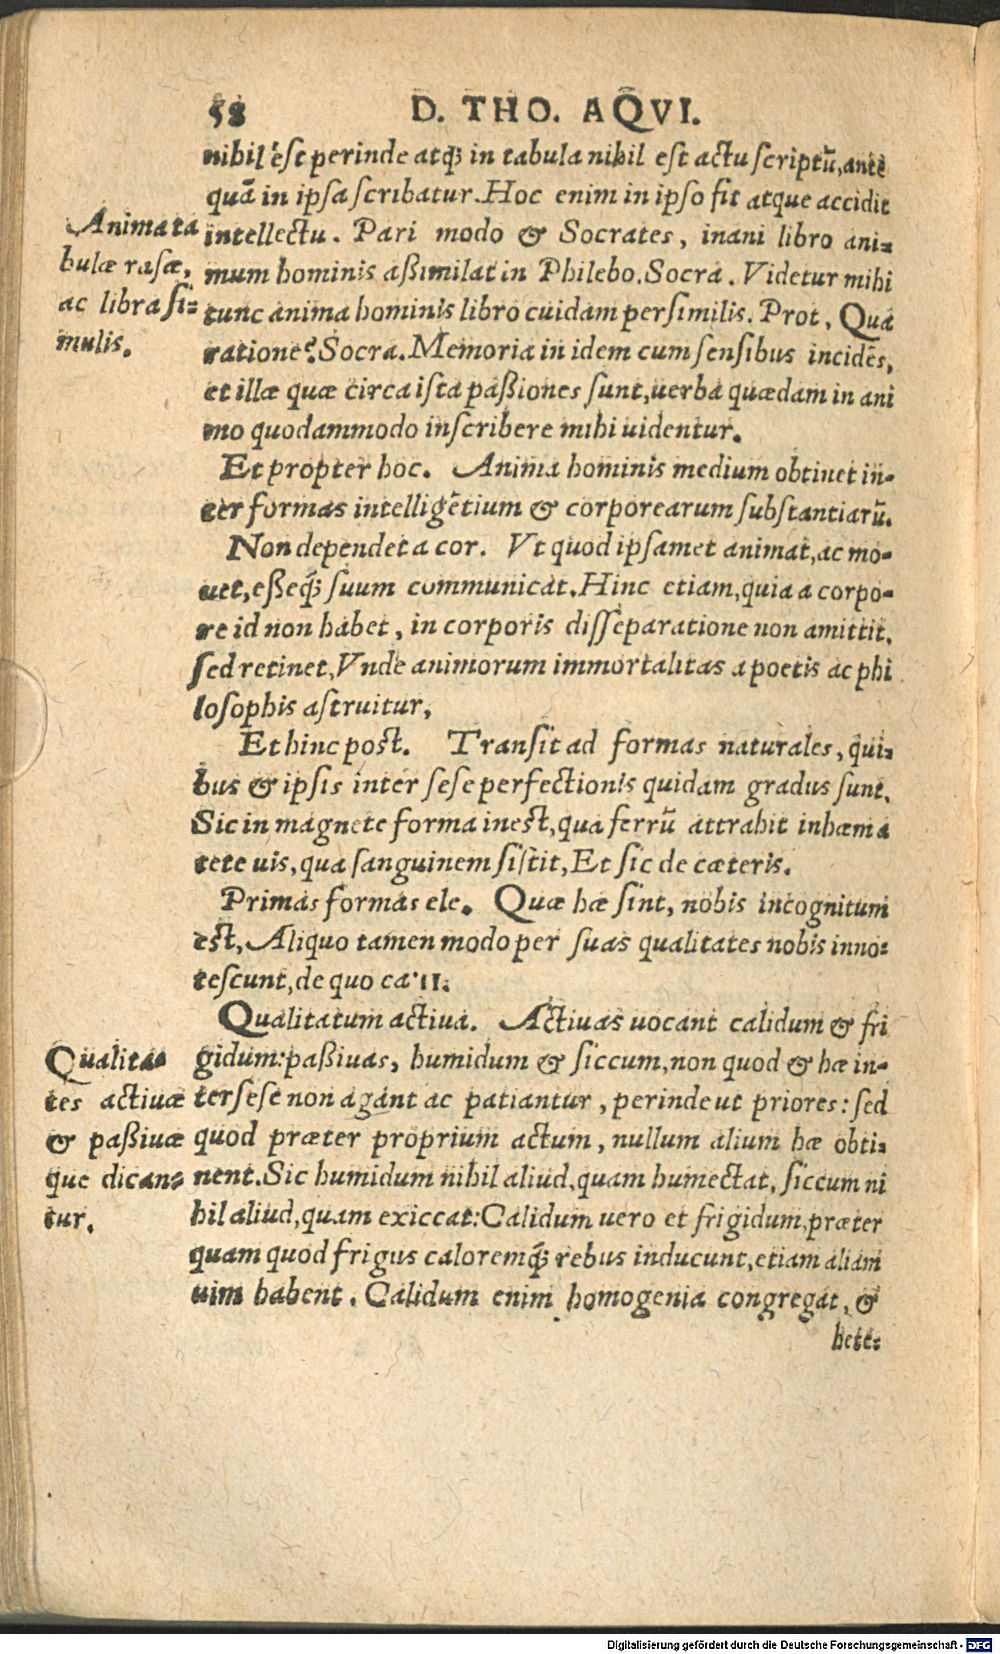 58 D. THO. AQVI.
nihil est perinde atq́; in tabula nihil est actu scriptũ, antè
quã in ipsa scribatur. Hoc enim in ipso fit atque accidit
intellectu. Pari modo & Socrates, inani libro ani-
mum hominis aßimilat in Philebo. Socra. Videtur mihi
tunc anima hominis libro cuidam persimilis. Prot, Qua
ratione? Socra. Memoria in idem cum sensibus incidẽs,
et illæ quæ circa ista paßiones sunt, uerba quædam in ani
mo quodammodo inscribere mihi uidentur.
Animata
bulæ rasæ,
ac libra si-
mulis.
Et propter hoc. Anima hominis medium obtinet in-
ter formas intelligẽtium & corporearum substantiarũ.
Non dependet a cor. Vt quod ipsamet animat, ac mo-
uet, eßeq́; suum communicat. Hinc etiam, quia a corpo-
re id non habet, in corporis disseparatione non amittit,
sed retinet, Vnde animorum immortalitas a poetis ac phi
losophis astruitur,
Et hinc post. Transit ad formas naturales, qui-
bus & ipsis inter sese perfectionis quidam gradus sunt.
Sic in magnete forma inest, qua ferrũ attrahit in hæma
tete uis, qua sanguinem sistit, Et sic de cæteris.
Primas formas ele. Quæ hæ sint, nobis incognitum
est, Aliquo tamen modo per suas qualitates nobis inno-
tescunt, de quo ca. 11.
Qualitatum actiua. Actiuas uocant calidum & fri
gidum: paßiuas, humidum & siccum, non quod & hæ in-
ter sese non agant ac patiantur, perinde ut priores: sed
quod præter proprium actum, nullum alium hæ obti-
nent. Sic humidum nihil aliud, quam humectat, siccum ni
hil aliud, quam exiccat: Calidum uero et frigidum, præter
quam quod frigus caloremq́; rebus inducunt, etiam aliam
uim habent. Calidum enim homogenia congregat, &
Qualita-
tes actiuæ
& paßiuæ
que dican-
tur.
hete-
Digitalisierung gefördert durch die Deutsche Forschungsgemeinschaft - DFG